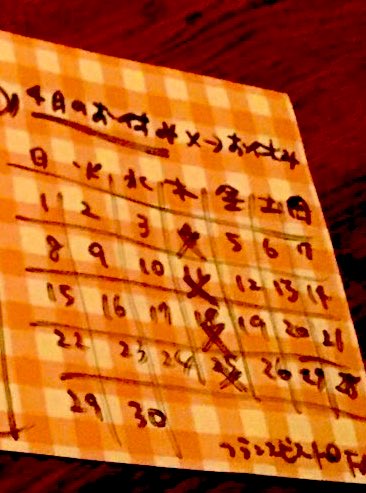 4月のお休み ×→お休み
月 火 水 木 金 土 日
1 2 3 4 5 6 7
8 9 10 11 12 13 14
15 16 17 18 19 20 21
22 23 24 25 26 27 28
29 30